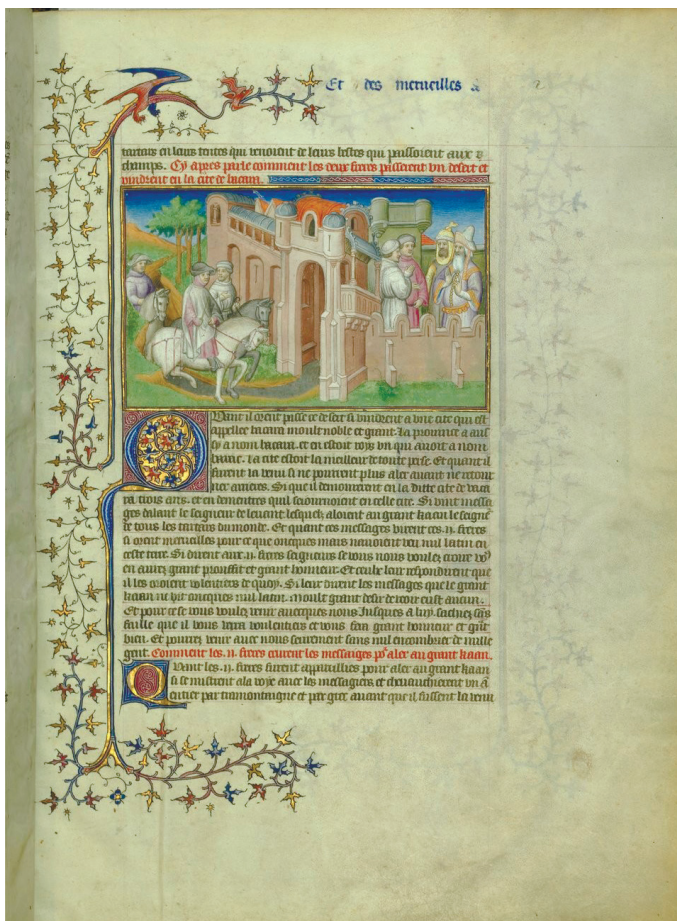 Et des merueilles
2
tartars en leurs tentes qui venoient de leurs bestes qui paissoient aux
champs. Cy apres parle comment les deux freres passerent vn desert et
vindrent en la cite de bacara.
Quant il orent passe ce desert si vindrent a vne cite qui est
appellee bacara moult noble et grant. La prouince a aus
sy a nom bacara. et en estoit roys vn qui auoit a nom
barac. La cite estoit la meilleur de toute perse. Et quant il
furent la venu si ne porent plus aler auant ne retour
ner arrieres. Si que il demourerent en la ditte cite de baca
ra trois ans. et en dementres quil seiournoient en celle cite. Si vint messa
ges dalau le seigneur de leuant lesquelz aloient au grant kaan le seigneur
de tous les tartres du monde. Et quant ces messages virent ces .ii. freres
si orent merueilles pour ce que oncques mais nauoient veu nul latin en
celle terre. Si dirent aux .ii. freres seigneurs se vous nous voulez croire vous
en aurez grant prouffit et grant honneur. Et ceulx leur respondirent que
il les croient volentiers de quoy. Si leur dirent les messages que le grant
kaan ne vit oncques nul latin. moult grant desir de veoir en a aucun.
Et pour ce se vous voulez venir auecques nous Jusques a luy. sachiez sans
faille que il vous verra voulentiers et vous fera grant honneur et grant
bien. Et pourrez venir auec nous seurement sans nul encombrier de nulle
gent. Comment les .ii. freres crurent les messaiges pour aler au grant kaan.
Quant les .ii. freres furent appareilliez pour aler au grant kaan
si se mistrent a la voye auec les messagiers et cheuauchierent vn an
entier par tramontaigne et par grec auant que il fussent la venu